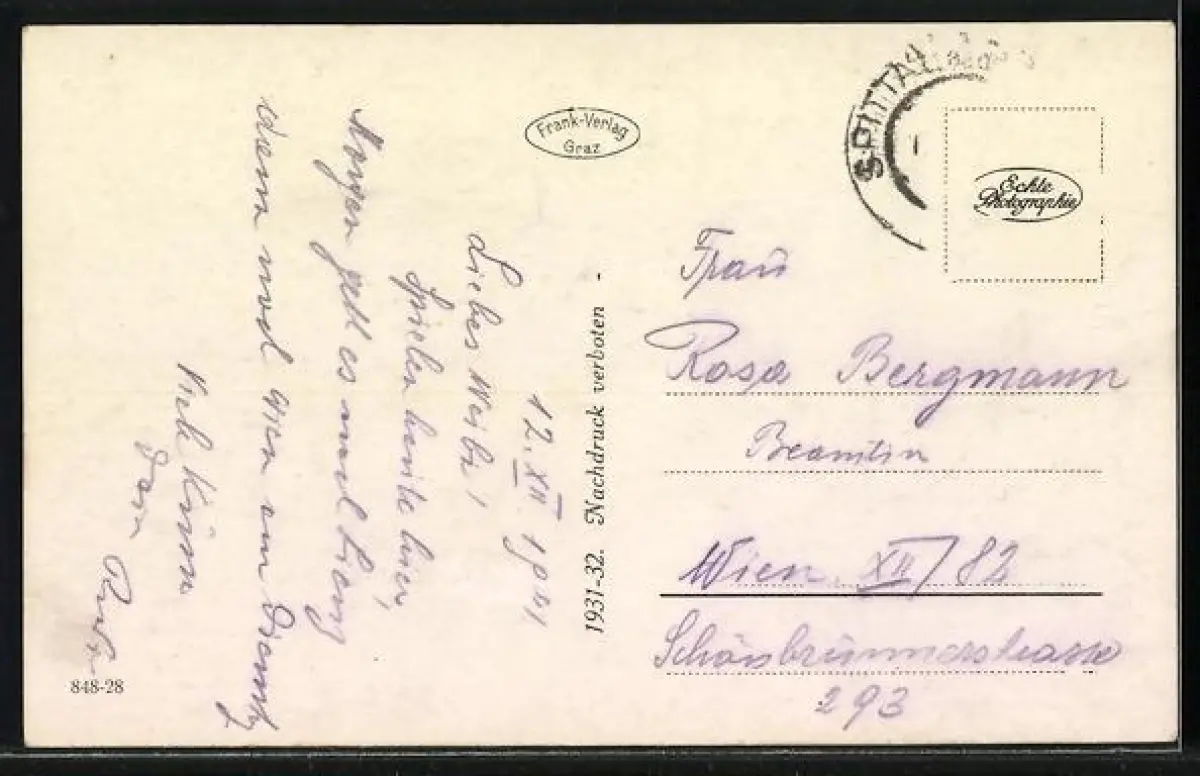 Frank-Verlag
Graz
SPITTAL
Echte
Photographie
12. XII. 1931
Liebes Weibi!
Spielen heute hier,
Morgen geht es nach Lienz
dann nach Wien am
Viele Küsse
Dein
1931-32. Nachdruck verboten -
848-28
Frau
Rosa Bergmann
Beamtin
Wien XII/82
Schönbrunnerstrasse
293